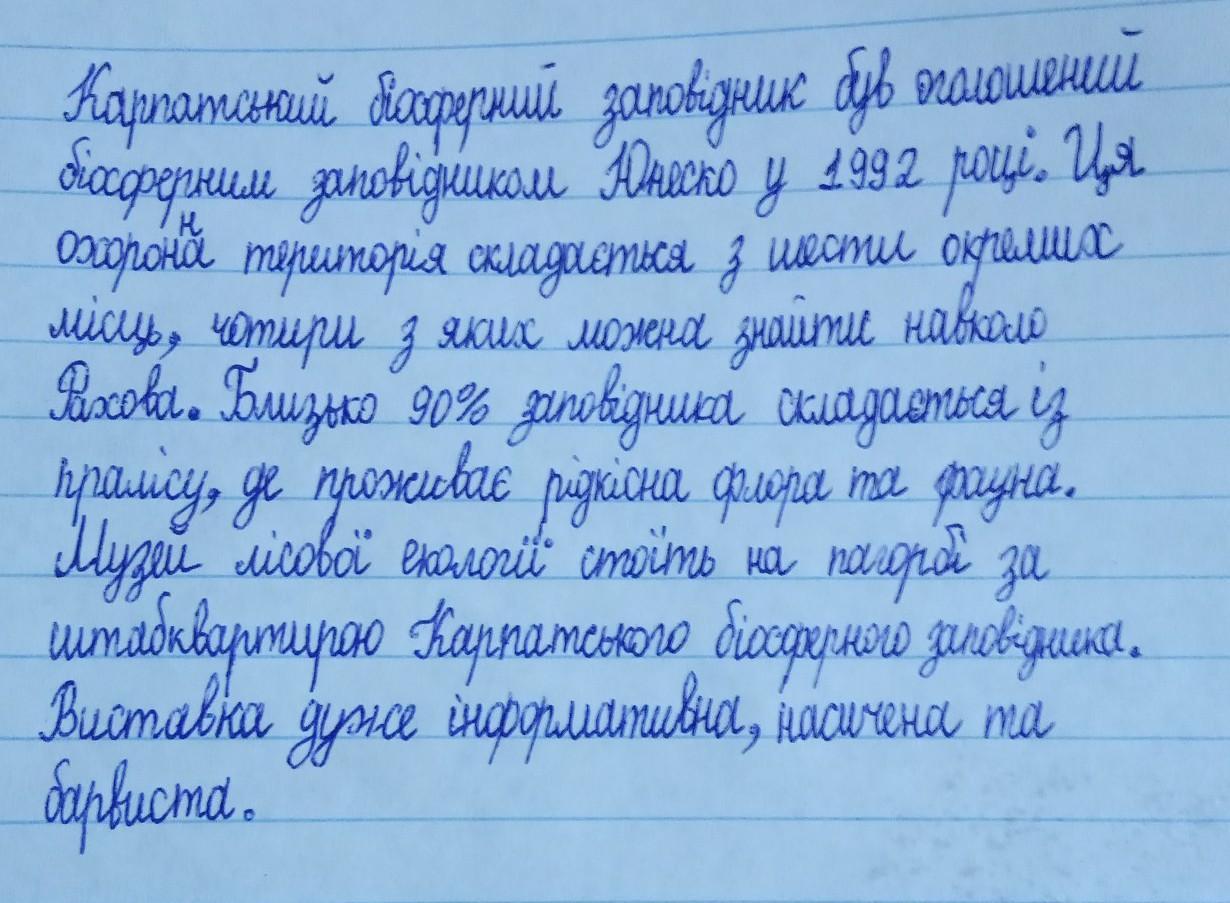 Карпатський біосферний заповідник був оголошений
біосферним заповідником Юнеско у 1992 році. Ця
охоронна територія складається з шести окремих
місць, чотири з яких можна знайти навколо
Рахова. Близько 90% заповідника складається із
пралісу, де проживає рідкісна флора та фауна.
Музей лісової екології стоїть на пагорбі за
штабквартирою Карпатського біосферного заповідника.
Виставка дуже інформативна, насичена та
барвиста.